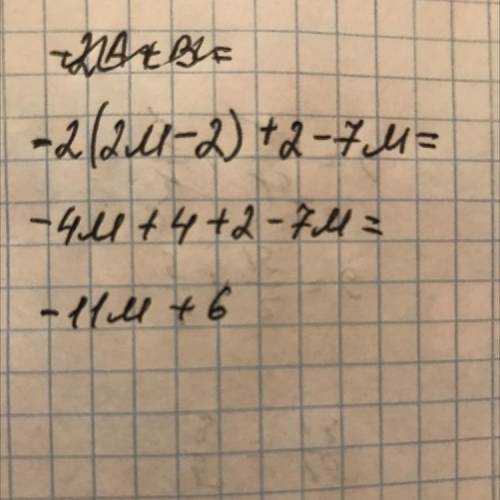 -2(2м-2)+2-7м=
-4м+4+2-7м=
-11м+6